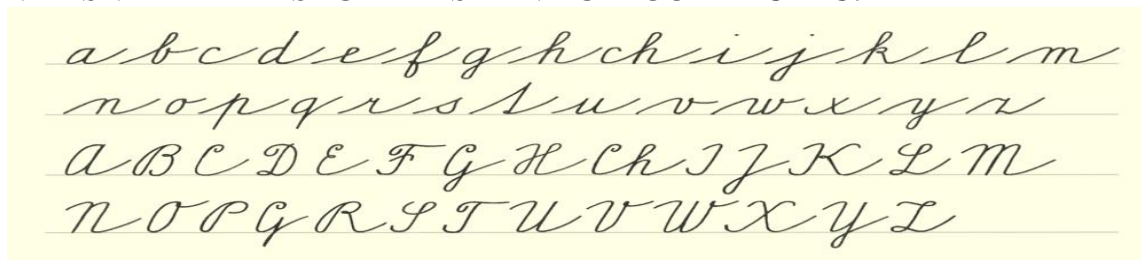 a b c d e f g h ch i j k l m
n o p q r s t u v w x y z
A B C D E F G H Ch I J K L M
N O P Q R S T U V W X Y Z